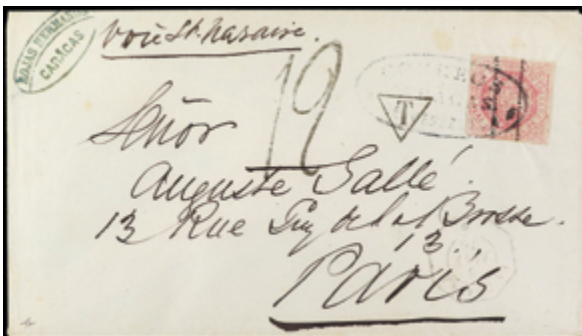 ROJAS HERMANOS
CARACAS
voie St. Nazaire.
12
T
Señor
Auguste Sallé.
13 Rue Guy de la Brosse.
13.
Paris